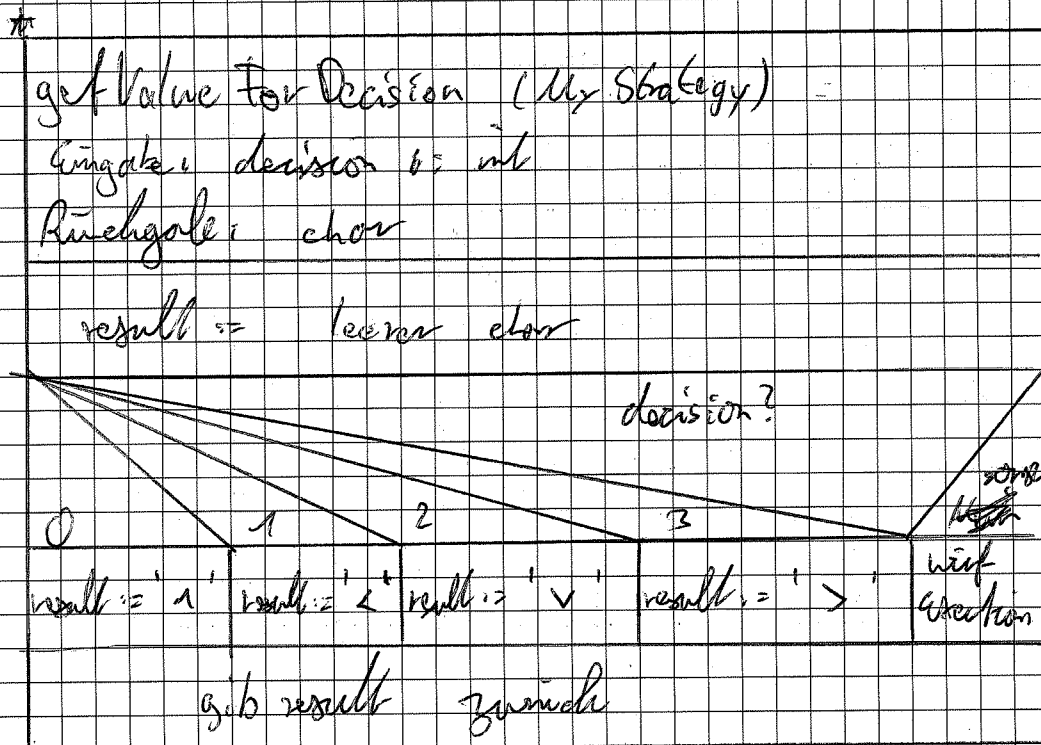 getValueForDecision (MyStrategy)
Eingabe: decision : int
Rückgabe: char
result := leerer char
decision?
sonst
0 1 2 3
result := '^' result := '<' result := 'v' result := '>' wirf Exection
gib result zurück